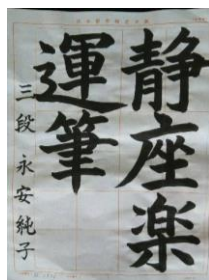 静座楽
運筆
三段 永安純子